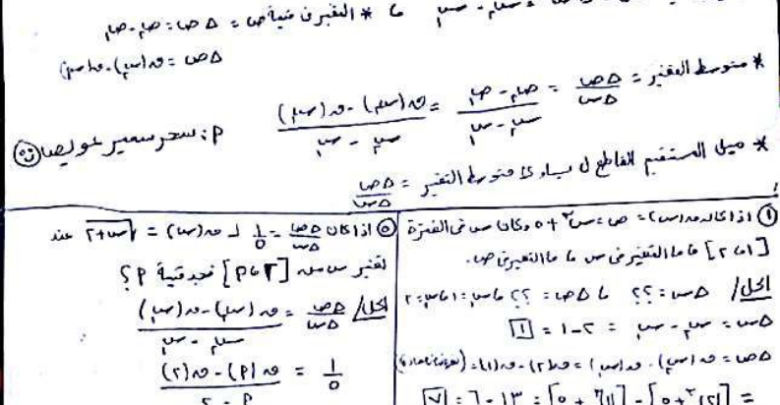 * التغير في قيمة ص = Δص = ص٢ - ص١
Δص = ق(س٢) - ق(س١)
* متوسط التغير = Δص/Δس = (ص٢ - ص١)/(س٢ - س١) = (ق(س٢) - ق(س١))/(س٢ - س١)
م: سحر سمير عويصات
* ميل المستقيم القاطع ل يساوي متوسط التغير = Δص/Δس
١) اذا كان ق(س) = ص = س٢ + ٥ وكان س في الفترة
[١، ٢] فما التغير في س ما التغير في ص.
الحل/ Δس = ؟؟ Δص = ؟؟ س١ = ١ س٢ = ٢
Δس = س٢ - س١ = ٢ - ١ = ١
Δص = ق(س٢) - ق(س١) = ق(٢) - ق(١) =
= [(٢)٢ + ٥] - [(١)٢ + ٥] = ١٣ - ٦ = ٧
٥) اذا كان Δص/Δس = ١/٥ ل ق(س) = √س+٢ عند
تغير س من [٢، م] فجد قيمة م؟
الحل/ Δص/Δس = (ق(س٢) - ق(س١))/(س٢ - س١)
١/٥ = (ق(م) - ق(٢))/(م - ٢)